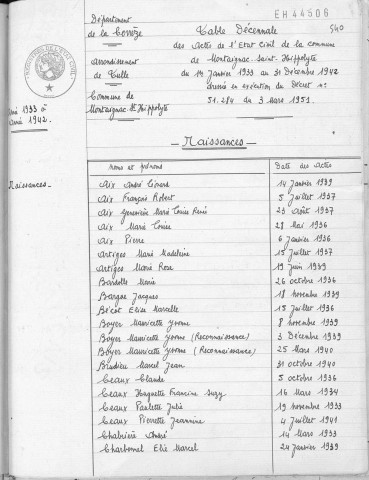 EH44506
540
Département
de la Corrèze
arrondissement
de Tulle
Commune de
Montaignac St Hippolyte
Table Décennale
des Actes de l'Etat Civil de la commune
de Montaignac-Saint-Hippolyte
du 1er Janvier 1933 au 31 Décembre 1942
dressé en exécution du Décret n°
51.284 du 3 Mars 1951.
1933 à
1942.
Naissances
— Naissances —
Noms et prénoms Date des Actes
Aix André Léonard 14 Janvier 1939
Aix François Robert 5 Juillet 1937
Aix Geneviève Marie Louise René 23 Août 1937
Aix Marie Louise 28 Mai 1936
Aix Pierre 6 Janvier 1936
Artiges Marie Madeleine 15 Juillet 1937
Artiges Marie Rose 19 Juin 1939
Bardolle Marie 26 octobre 1936
Bargue Jacques 18 novembre 1939
Elise Marcelle 15 Juillet 1936
Boyer Mauricette Yvonne 8 novembre 1939
Boyer Mauricette Yvonne (Reconnaissance) 3 Décembre 1939
Boyer Mauricette Yvonne (Reconnaissance) 25 Mars 1940
Marcel Jean 31 octobre 1940
Ceaux Claude 5 octobre 1936
Ceaux Huguette Francine Suzy 16 Mars 1934
Ceaux Paulette Julie 19 novembre 1933
Ceaux Pierrette Jeannine 4 Juillet 1941
Chabrière André 14 Mars 1933
Charbonnel Elie Marcel 24 Janvier 1939